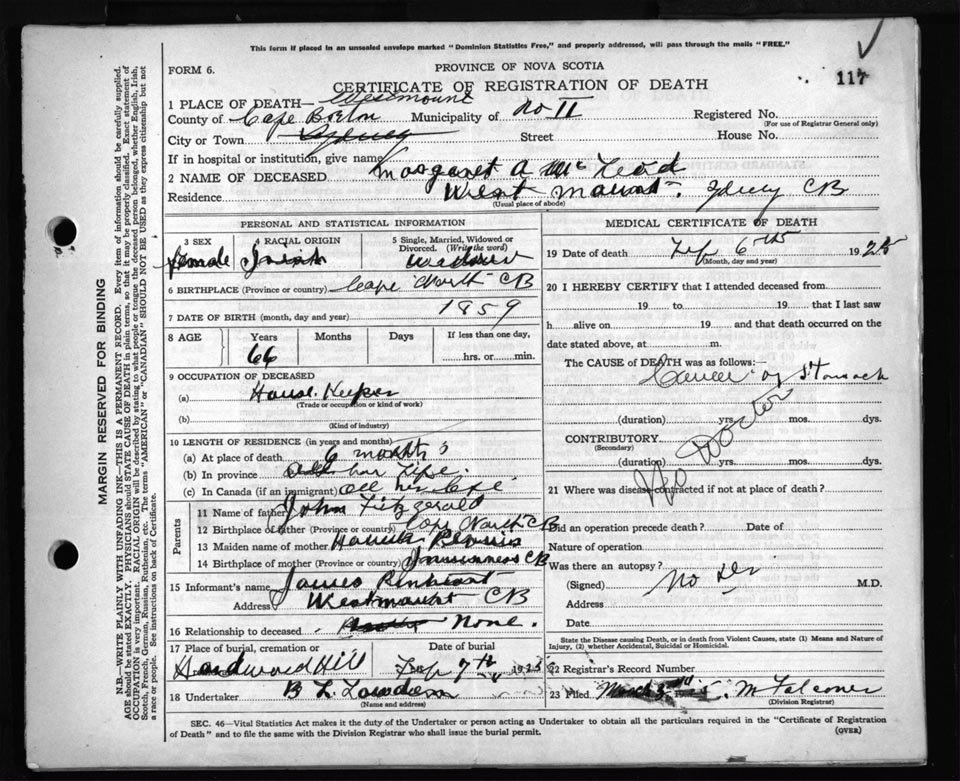 This form if placed in an unsealed envelope marked "Dominion Statistics Free," and properly addressed, will pass through the mails "FREE."
FORM 6.
PROVINCE OF NOVA SCOTIA
117
CERTIFICATE OF REGISTRATION OF DEATH
1 PLACE OF DEATH— Westmount
County of Cape Breton Municipality of No II Registered No.
(For use of Registrar General only)
City or Town Sydney Street House No.
If in hospital or institution, give name
2 NAME OF DECEASED Margaret A McLeod
Residence West Mount Sydney CB
(Usual place of abode)
PERSONAL AND STATISTICAL INFORMATION
3 SEX 4 RACIAL ORIGIN 5 Single, Married, Widowed or Divorced. (Write the word)
female Irish Widow
6 BIRTHPLACE (Province or country) Cape North CB
7 DATE OF BIRTH (month, day and year) 1859
8 AGE Years Months Days If less than one day,
66 hrs. or min.
9 OCCUPATION OF DECEASED
(a) House Keeper
(Trade or occupation or kind of work)
(b)
(Kind of industry)
10 LENGTH OF RESIDENCE (in years and months)
(a) At place of death 6 months
(b) In province all her Life.
(c) In Canada (if an immigrant) all her Life
Parents
11 Name of father John Fitzgerald
12 Birthplace of father (Province or country) Cape North CB
13 Maiden name of mother
14 Birthplace of mother (Province or country) CB
15 Informant's name James
Address Westmount CB
16 Relationship to deceased None.
17 Place of burial, cremation or Date of burial
Hardwood Hill Feb 7th 1925
18 Undertaker B L
(Name and address)
MEDICAL CERTIFICATE OF DEATH
19 DATE OF DEATH Feb 6th 1925
(Month, day and year)
20 I HEREBY CERTIFY that I attended deceased from
19 to 19 that I last saw
h alive on 19 and that death occurred on the
date stated above, at m.
The CAUSE of DEATH was as follows:
Cancer of Stomach
(duration) yrs. mos. dys.
CONTRIBUTORY
(Secondary)
(duration) yrs. mos. dys.
No Doctor
21 Where was disease contracted if not at place of death?
Did an operation precede death? Date of
Nature of operation
Was there an autopsy?
(Signed) No Dr M.D.
Address
Date
State the Disease causing Death, or in death from Violent Causes, state (1) Means and Nature of
Injury, (2) whether Accidental, Suicidal or Homicidal.
22 Registrar's Record Number
23 Filed March 3rd 1925. M Falconer
(Division Registrar)
SEC. 46—Vital Statistics Act makes it the duty of the Undertaker or person acting as Undertaker to obtain all the particulars required in the "Certificate of Registration
of Death" and to file the same with the Division Registrar who shall issue the burial permit.
(OVER)
MARGIN RESERVED FOR BINDING
N.B.—WRITE PLAINLY WITH UNFADING INK—THIS IS A PERMANENT RECORD. Every item of information should be carefully supplied.
AGE should be stated EXACTLY. PHYSICIANS should STATE CAUSE OF DEATH in plain terms, so that it may be properly classified. Exact statement of
OCCUPATION is very important. RACIAL ORIGIN will be described by stating to what people or tongue the deceased person belonged, whether English, Irish,
Scotch, French, German, Russian, Ruthenian, etc. The terms "AMERICAN" or "CANADIAN" SHOULD NOT BE USED as they express citizenship but not
a race or people. See instructions on back of Certificate.